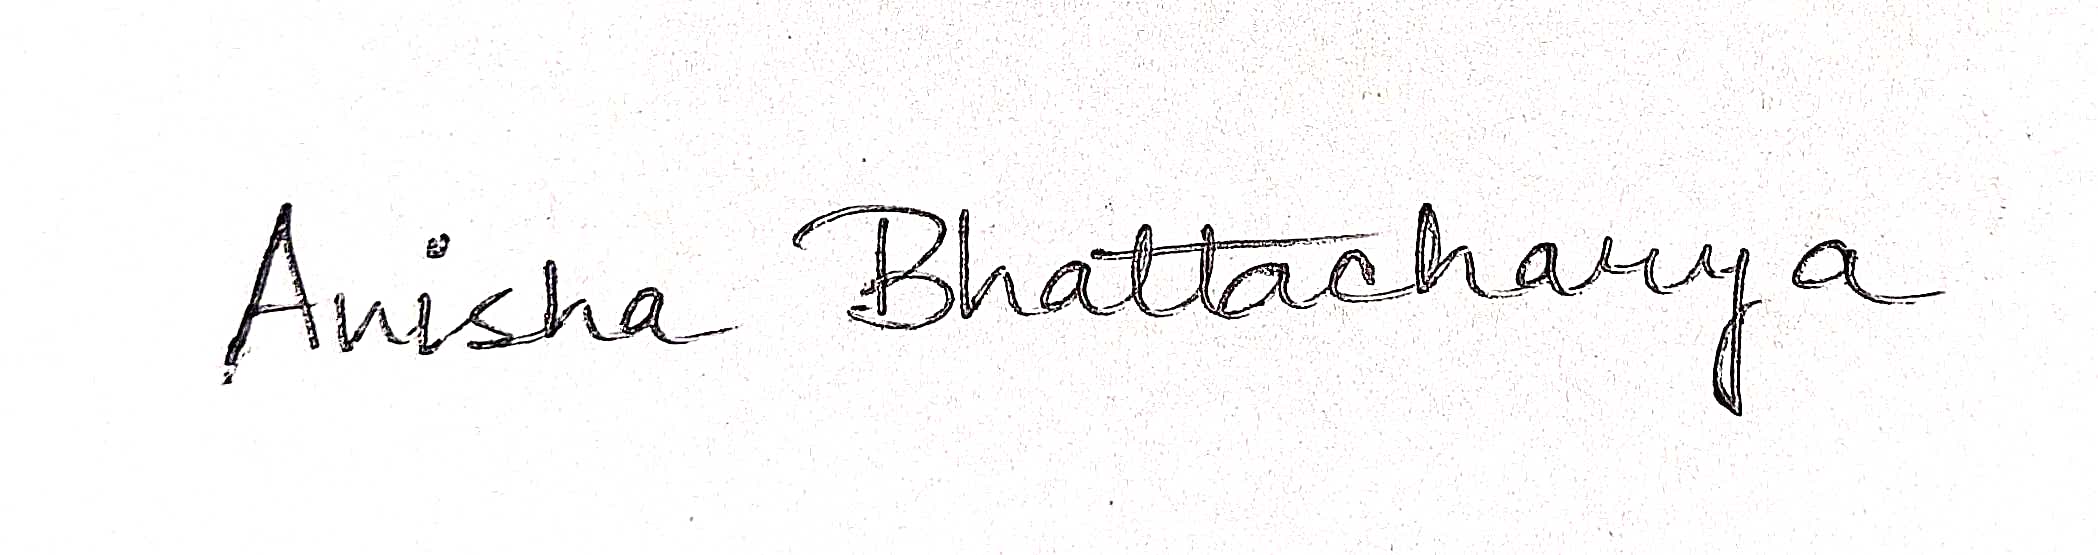 Anisha Bhattacharya